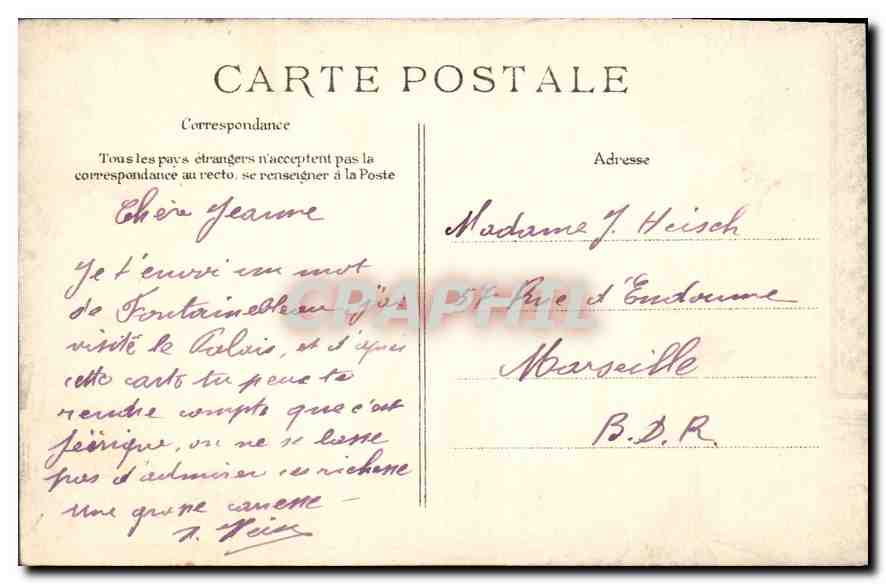 CARTE POSTALE
Correspondance
Tous les pays étrangers n'acceptent pas la
correspondance au recto, se renseigner à la Poste
Chère Jeanne
Je t'envoi un mot
de Fontainebleau j'ai
visité le Palais, et d'après
cette carte tu peux te
rendre compte que c'est
féérique, on ne se lasse
pas d'admirer ces richesse
Une grosse caresse
Adresse
Madame J. Heisch
Rue d'Endoume
Marseille
B.D.R.
CPAPHIL